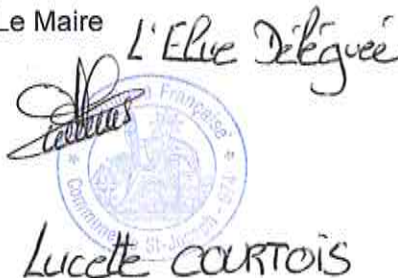 Le Maire
L'Elue Déléguée
Française
Commune de St-Joseph - 974
Lucette COURTOIS